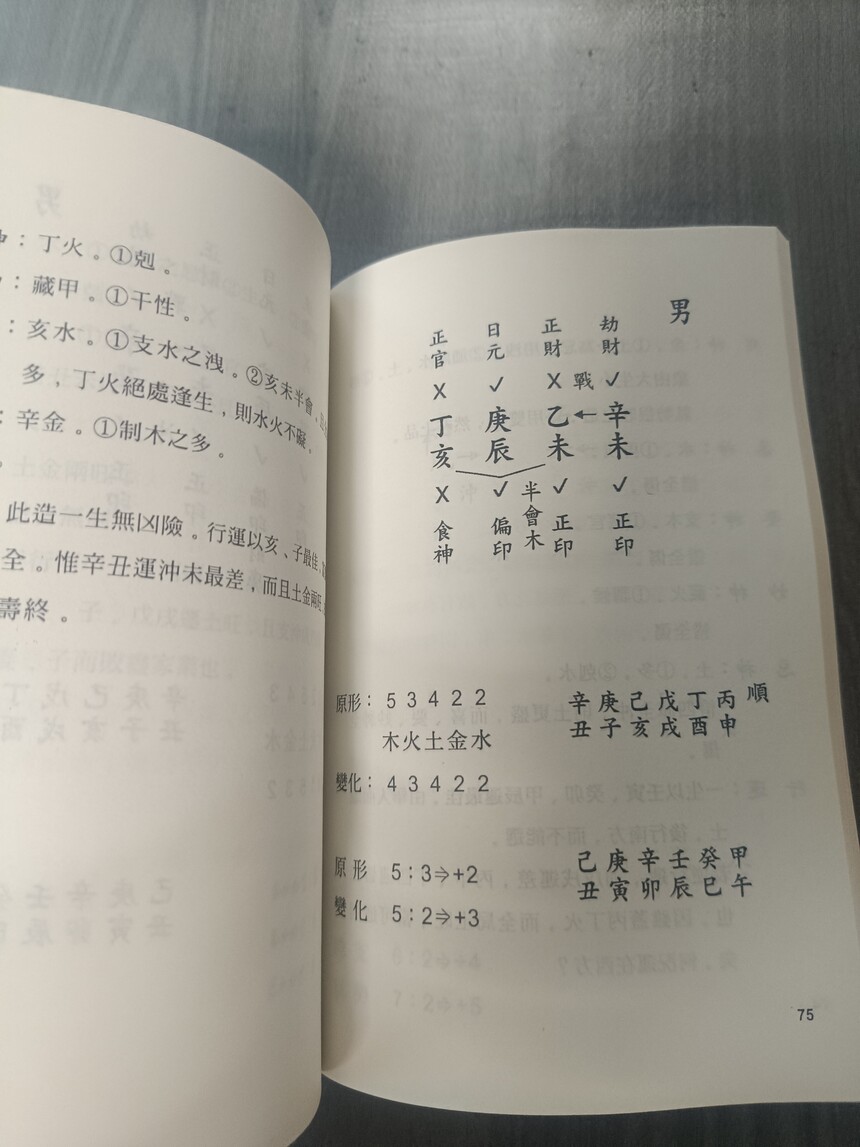 ：丁火。①剋。
：藏甲。①干性。
：亥水。①支水之洩。②亥未半會，
多，丁火絕處逢生，則水火不礙。
：辛金。①制木之多。
此造一生無凶險。行運以亥、子最佳，
全。惟辛丑運沖未最差，而且土金兩旺，
壽終。
男
正官 日元 正財 劫財
X ✓ X 戰 ✓
丁 庚 乙 ← 辛
亥 辰 未 未
X ✓ 半會木 ✓ ✓
食神 偏印 正印 正印
原形：5 3 4 2 2
木火土金水
變化：4 3 4 2 2
辛庚己戊丁丙 順
丑子亥戌酉申
原形 5：3⇒+2
變化 5：2⇒+3
己庚辛壬癸甲
丑寅卯辰巳午
75